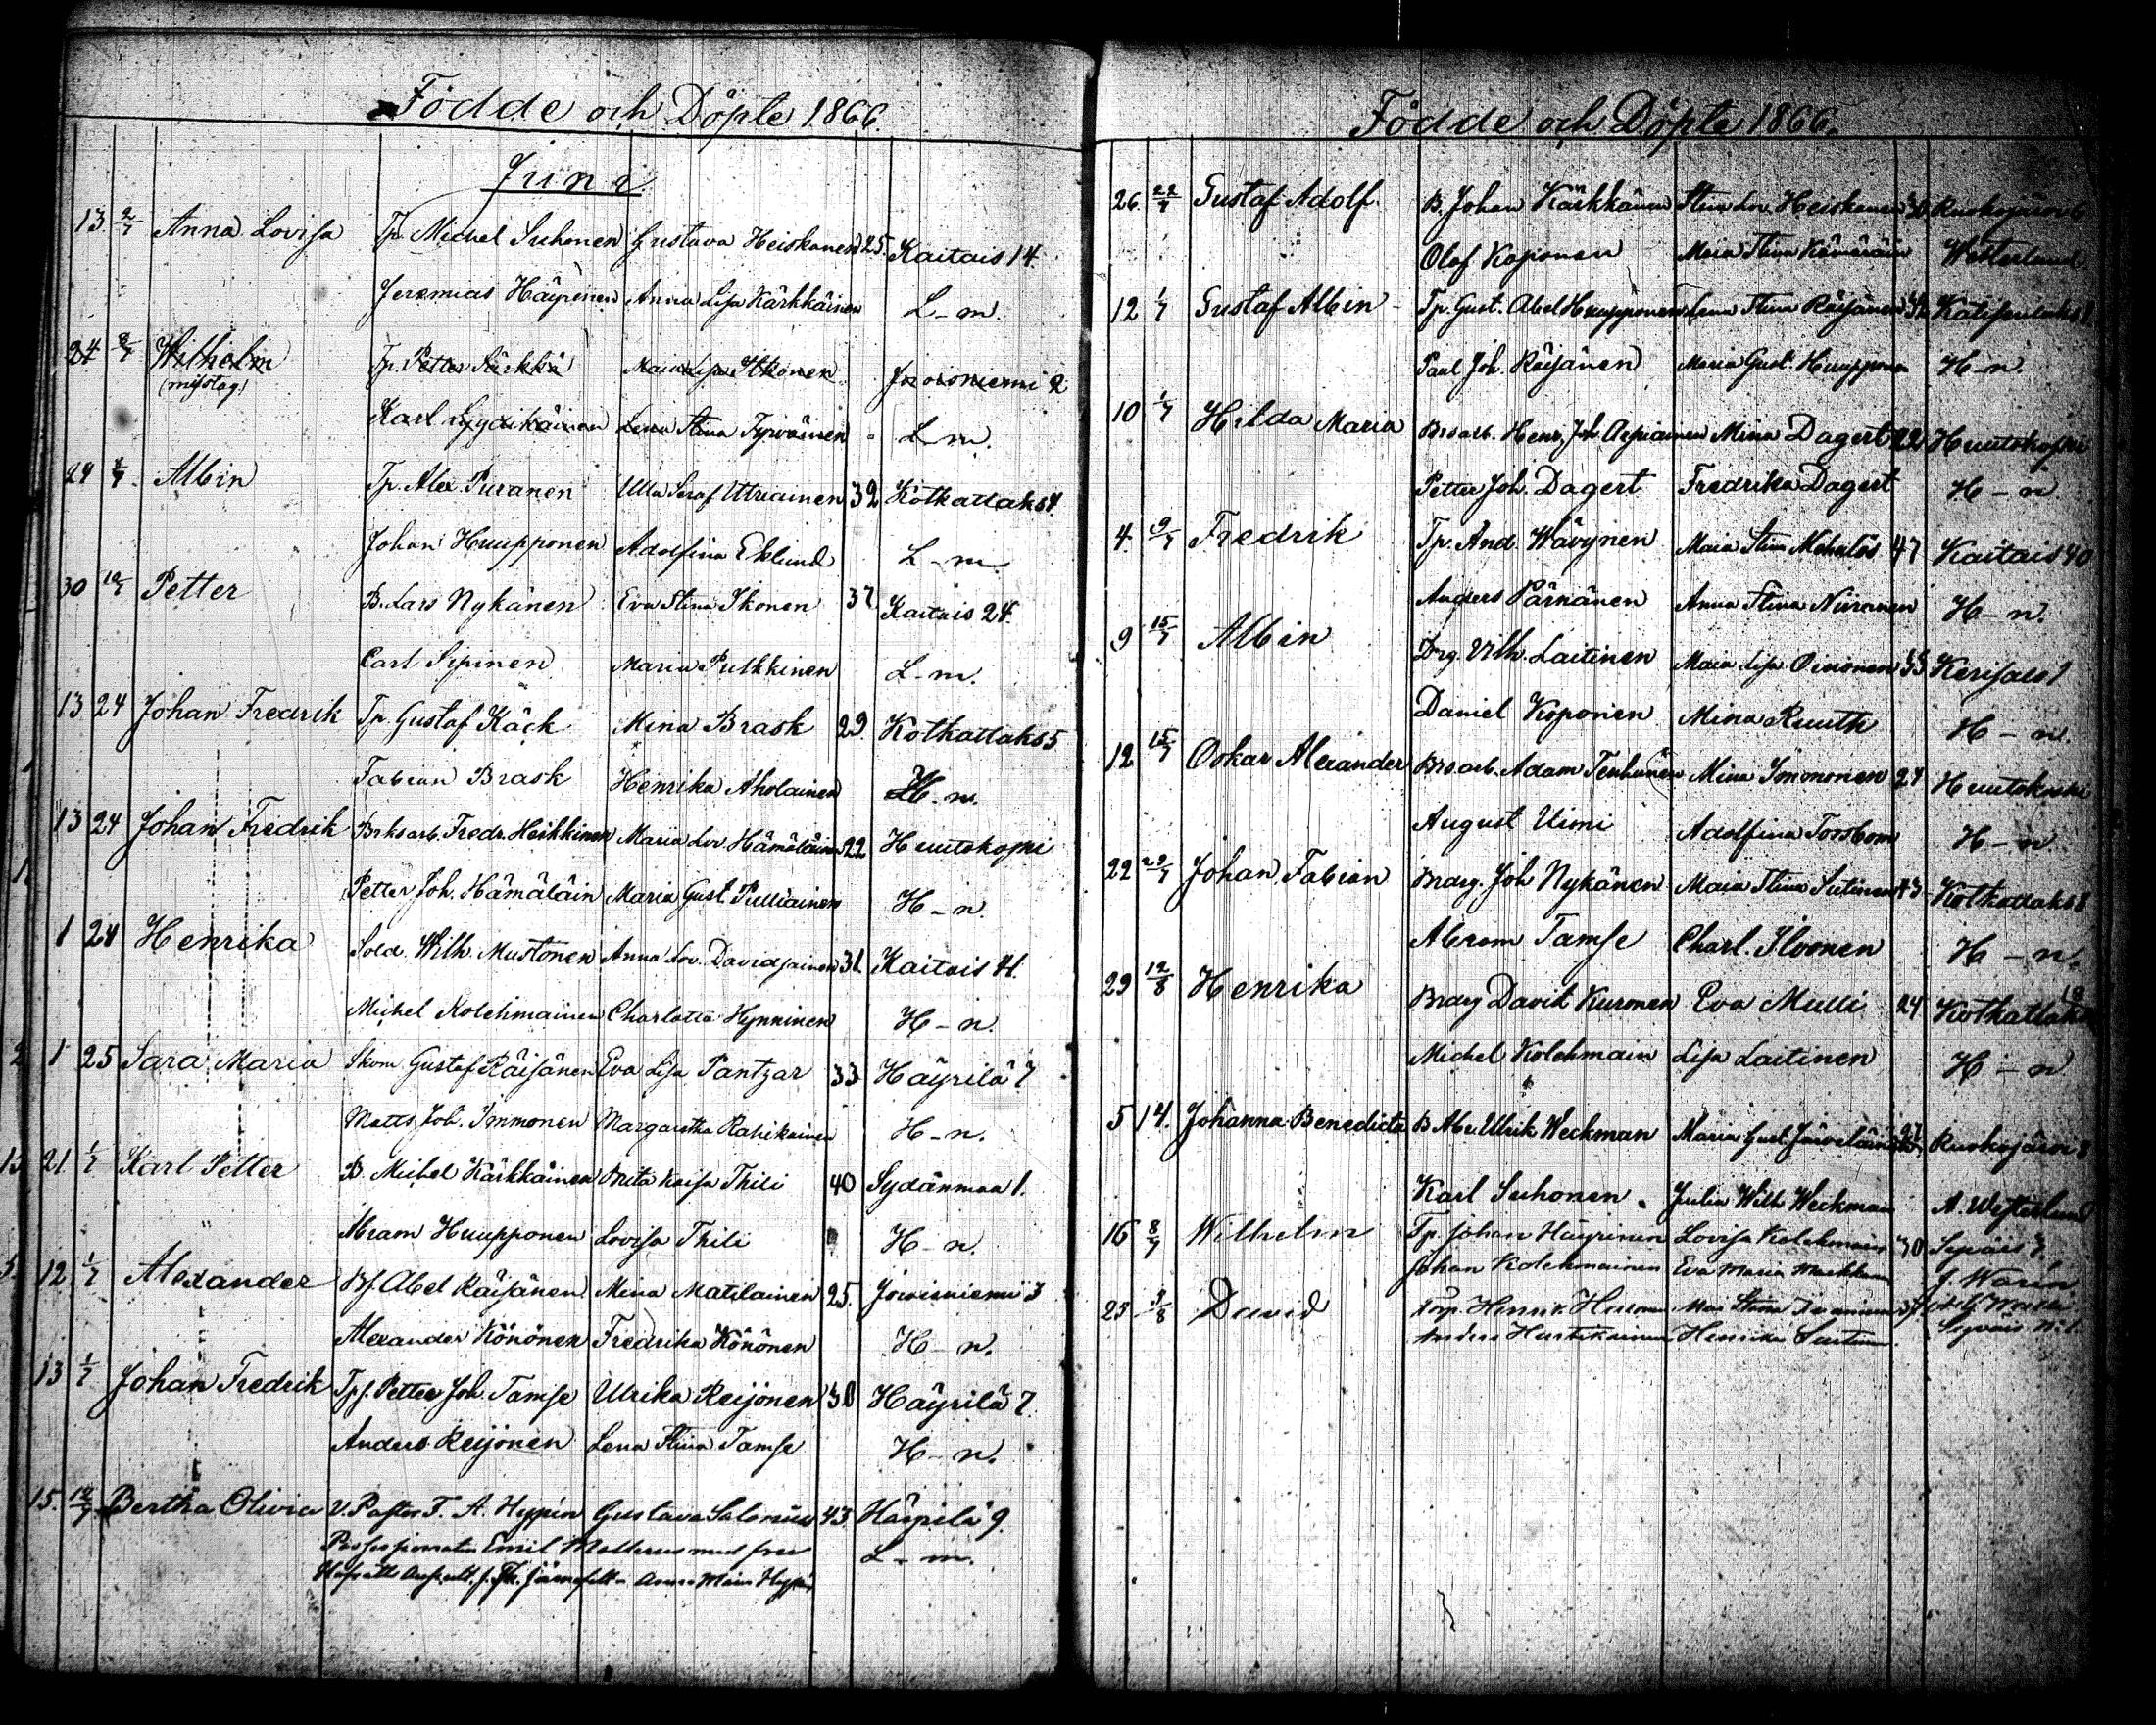 Födde och Döpte 1866.
Juni
13 2/7 Anna Lovisa Tp. Michel Suhonen Gustava Heiskanen 25. Kaitais 14.
Jeremias Häyrinen Anna Lisa Kärkkäinen L-m.
24 Wilhelm Tp. Petter Särkkä Maria Lisa Itkonen Joroisniemi 2
(misstag)
Karl Lyydikäinen Lena Stina Tyrväinen L-m.
24 Albin Tp. Alex Puranen Ulla Seraf Utriainen 32 Kotkatlaks 4.
Johan Huupponen Adolfina Eklund L-m
30 Petter B. Lars Nykänen Eva Stina Ikonen 37 Kaitais 28.
Carl Sipinen Maria Pulkkinen L-m.
13 24 Johan Fredrik Tp. Gustaf Käck Mina Brask 29. Kotkatlaks 5
Fabian Brask Henrika Aholainen H-n.
13 24 Johan Fredrik Bruksarb. Fredr. Heikkinen Maria Lov. Hämäläinen 22 Huutokoski
Petter Joh. Hämäläin Maria Gust. Pulliainen H-n.
1 24 Henrika Sold. Wilh. Mustonen Anna Lov. Davidsainen 31. Kaitais 41.
Michel Kolehmainen Charlotta Hynninen H-n.
1 25 Sara Maria Skom Gustaf Räisänen Eva Lisa Pantzar 33 Häyrilä 7
Matts Joh. Immonen Margaretha Rahikainen H-n.
21 1/7 Karl Petter B. Michel Kärkkäinen Brita Kaisa Thili 40 Sydänmaa 1.
Abram Huupponen Lovisa Thili H-n.
12 1/7 Alexander Bf. Abel Räisänen Mina Matilainen 25. Joroisniemi 3
Alexander Könönen Fredrika Könönen H-n.
13 1/7 Johan Fredrik Tpf. Petter Joh. Tamse Ulrika Reijonen 30 Häyrilä 7
Anders Reijonen Lena Stina Tamse H-n.
15. Bertha Olivia V. Pastor F. A. Hyppén Gustava Salonius 43 Häyrilä 9.
Possessionaten Emil Molterus med fru L-m.
Födde och Döpte 1866.
26. 22/7 Gustaf Adolf. B. Johan Kärkkänen Stina Lov. Heiskanen Ruokojärvi 6
Olof Koponen Maia Stina Westerlund
12 1/7 Gustaf Albin Tp. Gust. Abel Huupponen Lena Stina Räisänen Katisenlaks 1
Paul Joh. Räisänen Maria Gust. Huupponen H-n.
10 1/7 Hilda Maria Bruarb. Henr. Joh. Mina Dagert 22 Huutokoski
Petter Joh. Dagert Fredrika Dagert H-n
4. 9/7 Fredrik Tp. And. Wäyrynen Maia Stina 47 Kaitais 40
Anders Pärnänen Anna Stina Niiranen H-n.
9 15/7 Albin Drg. Wilh. Laitinen Maia Lisa Oinonen 33 Kerisalo 1
Daniel Koponen Mina Ruuth H-n.
12 15/7 Oskar Alexander Bruarb. Adam Tenhunen Mina Immonen 27 Huutokoski
August Uimi Adolfina Forsbom H-n
22 29/7 Johan Fabian Brdrg. Joh Nykänen Maia Stina Sutinen 43 Kotkatlaks 8
Abram Tamse Charl. Iloonen H-n.
29 12/8 Henrika Brdrg David Kuronen Eva Mulli 24 Kotkatlaks
Michel Kolehmain Lisa Laitinen H-n
5 14. Johanna Benedicta B Abr. Ulrik Weckman Maria Gust. Järveläinen Ruokojärvi 8
Karl Suhonen Julia Wilh Weckman A. Westerlund
16 8/7 Wilhelm Tp. Johan Häyrinen Lovisa Kolehmain 30 Syväis 7.
Johan Kolehmainen Eva Maria J. Warén
23 5/8 David Torp. Henrik Maia Stina
Anders Hustikainen Henrika Syväis